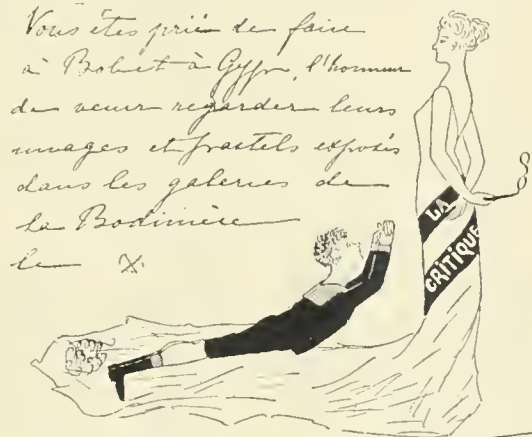 Vous êtes prié de faire
à Bobuet à Gypn, l'honneur
de venir regarder leurs
images et pastels exposés
dans les galeries de
la Bodinière
le X.
LA
CRITIQUE